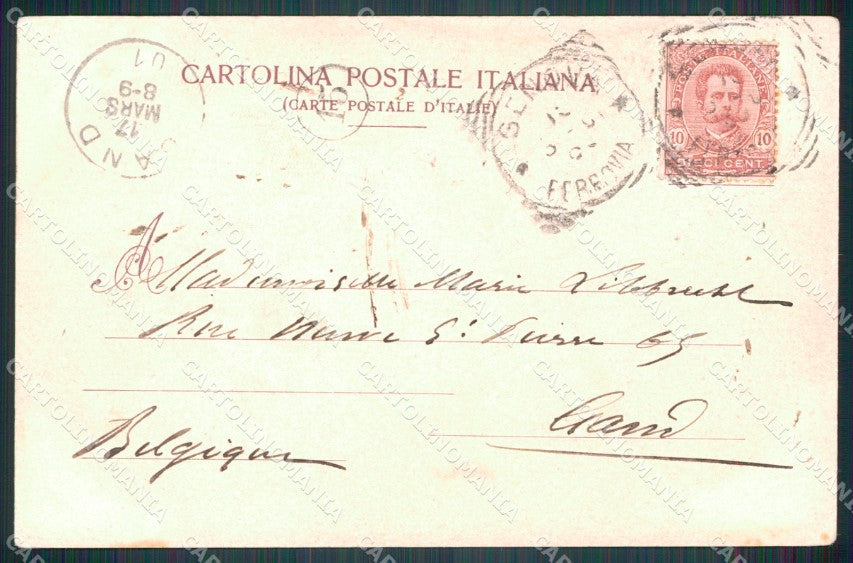 CARTOLINA POSTALE ITALIANA
(CARTE POSTALE D'ITALIE)
GAND
17
MARS
8-9
01
FERROVIA
10 10
CENT
A Mademoiselle Marie
Rue Neuve St Pierre 65
Gand
Belgique
CARTOLINOMANIA